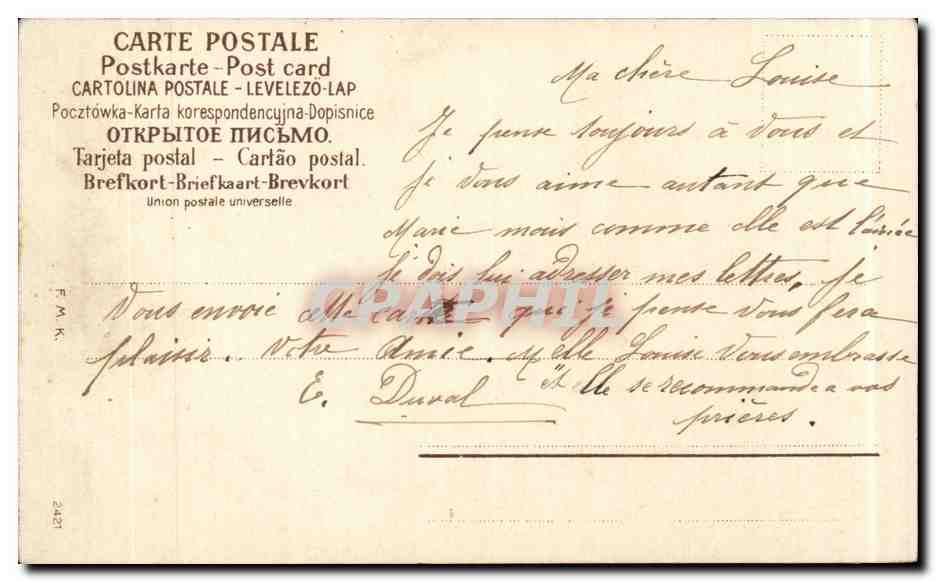 CARTE POSTALE
Postkarte - Post card
CARTOLINA POSTALE - LEVELEZÖ-LAP
Pocztówka-Karta korespondencyjna-Dopisnice
ОТКРЫТОЕ ПИСЬМО.
Tarjeta postal – Cartão postal.
Brefkort-Briefkaart-Brevkort
Union postale universelle
Ma chère Louise
Je pense toujours à Vous et
je vous aime autant que
Marie mais comme elle est l'aînée
je dois lui adresser mes lettres, je
Vous envoie cette carte qui je pense vous fera
plaisir. Votre Amie. Melle Louise Vous embrasse
E. Duval et elle se recommande a vos
prières.
F. M. K.
2421
GRAPHIL